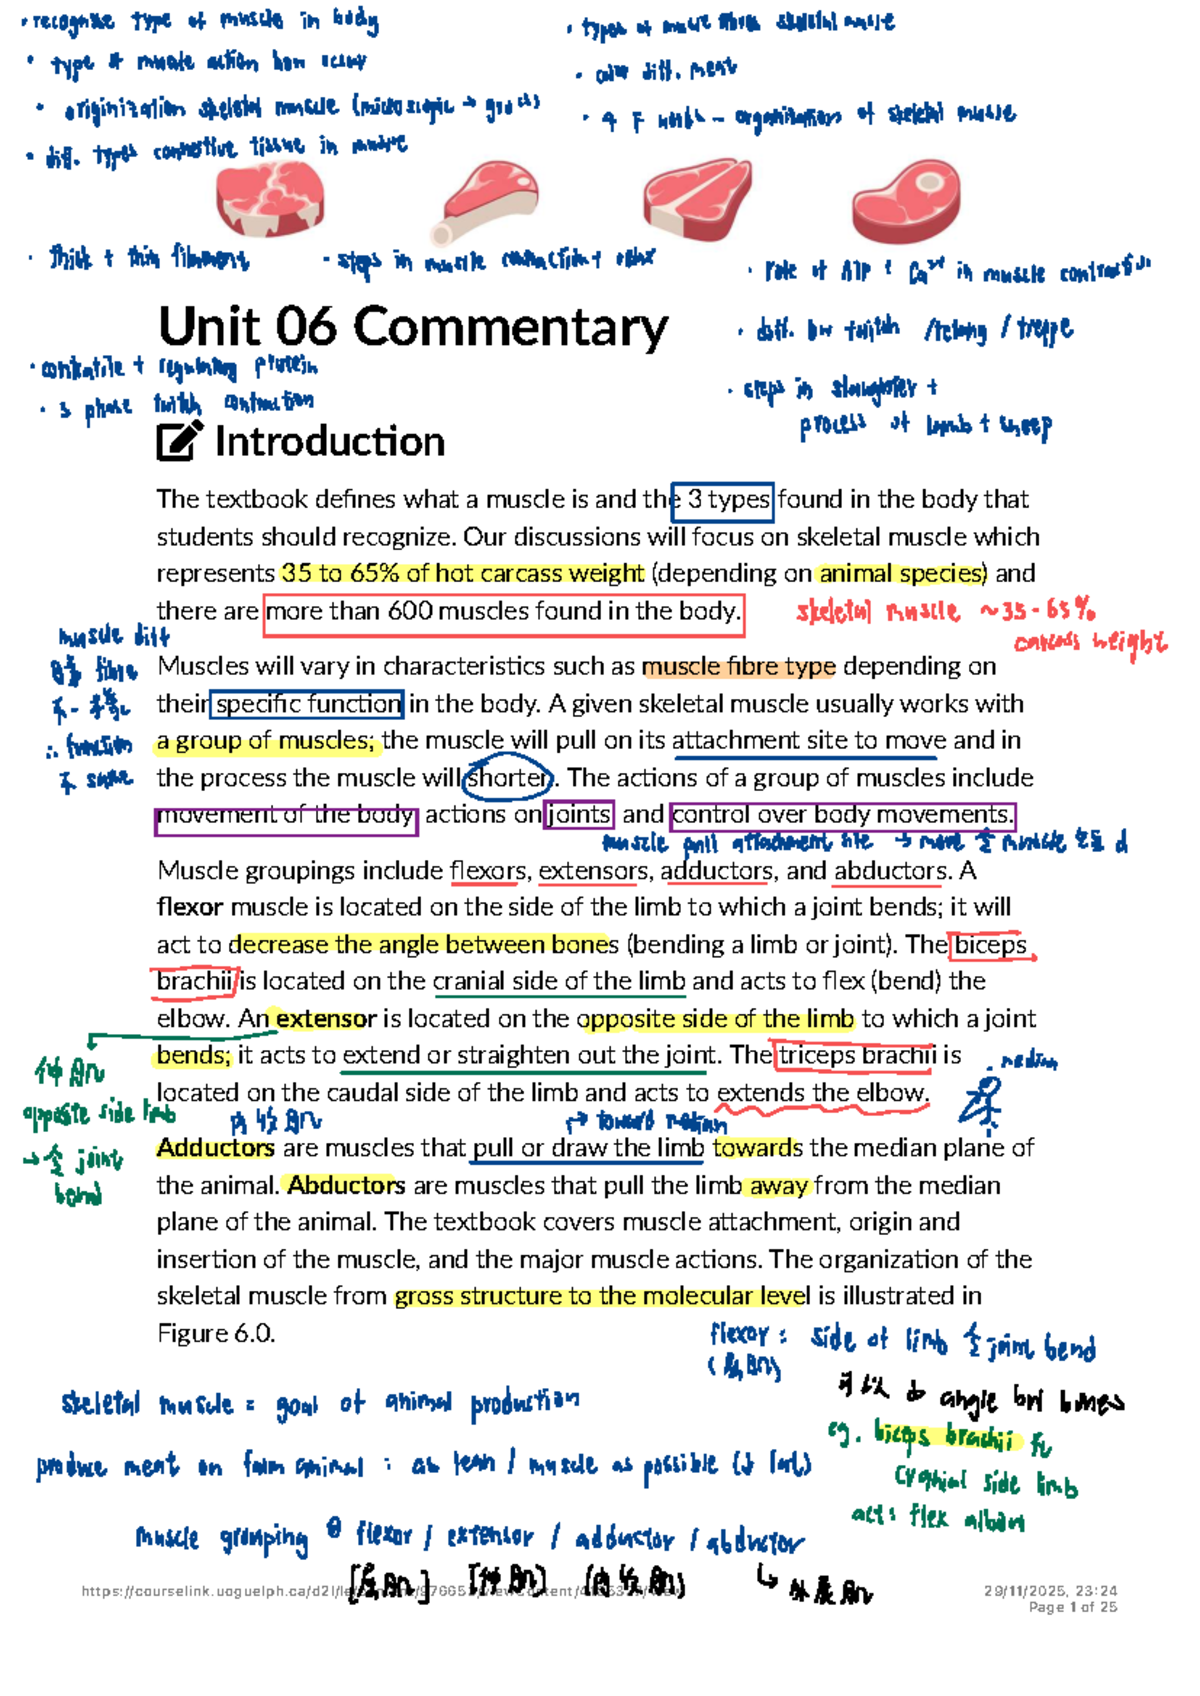 • recognize type of muscle in body
• type of muscle action how occur
• originization skeletal muscle (microscopic → gross)
• diff. types connective tissue in muscle
• types of muscle fibres skeletal muscle
• color diff. meat
• 4 F words - organization of skeletal muscle
• thick + thin filament
• steps in muscle contraction + relax
• role of ATP & Ca²⁺ in muscle contraction
Unit 06 Commentary
• diff. bw twitch / tetany / treppe
• contratile + regulatory protein
• 3 phase twitch contraction
• steps in slaughter +
process of lamb + sheep
Introduction
The textbook defines what a muscle is and the 3 types found in the body that
students should recognize. Our discussions will focus on skeletal muscle which
represents 35 to 65% of hot carcass weight (depending on animal species) and
there are more than 600 muscles found in the body.
skeletal muscle ~35-65%
carcass weight
muscle diff
fibre
∴ function
不 same
Muscles will vary in characteristics such as muscle fibre type depending on
their specific function in the body. A given skeletal muscle usually works with
a group of muscles; the muscle will pull on its attachment site to move and in
the process the muscle will shorten. The actions of a group of muscles include
movement of the body actions on joints and control over body movements.
muscle pull attachment site → move 令 muscle
Muscle groupings include flexors, extensors, adductors, and abductors. A
flexor muscle is located on the side of the limb to which a joint bends; it will
act to decrease the angle between bones (bending a limb or joint). The biceps
brachii is located on the cranial side of the limb and acts to flex (bend) the
elbow. An extensor is located on the opposite side of the limb to which a joint
bends; it acts to extend or straighten out the joint. The triceps brachii is
located on the caudal side of the limb and acts to extends the elbow.
median
伸肌
opposite side limb
→ 令 joint
bend
内收肌
→ toward median
Adductors are muscles that pull or draw the limb towards the median plane of
the animal. Abductors are muscles that pull the limb away from the median
plane of the animal. The textbook covers muscle attachment, origin and
insertion of the muscle, and the major muscle actions. The organization of the
skeletal muscle from gross structure to the molecular level is illustrated in
Figure 6.0.
flexor : side of limb 令 joint bend
(屈肌)
可以 ↓ angle bw bones
eg. biceps brachii
cranial side limb
act: flex albow
skeletal muscle = goal of animal production
produce meat on farm animal : as lean / muscle as possible (↓ fat)
muscle grouping flexor / extensor / adductor / abductor
[屈肌] [伸肌] (内收肌) ↳ 外展肌
29/11/2025, 23:24
Page 1 of 25